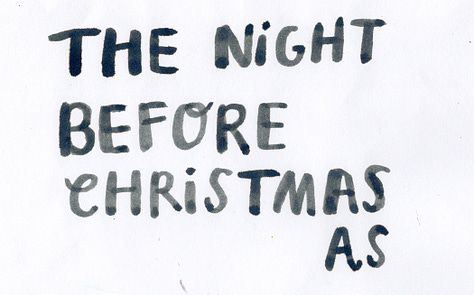 THE NiGHT
BEFORE
CHRiSTMAS
AS